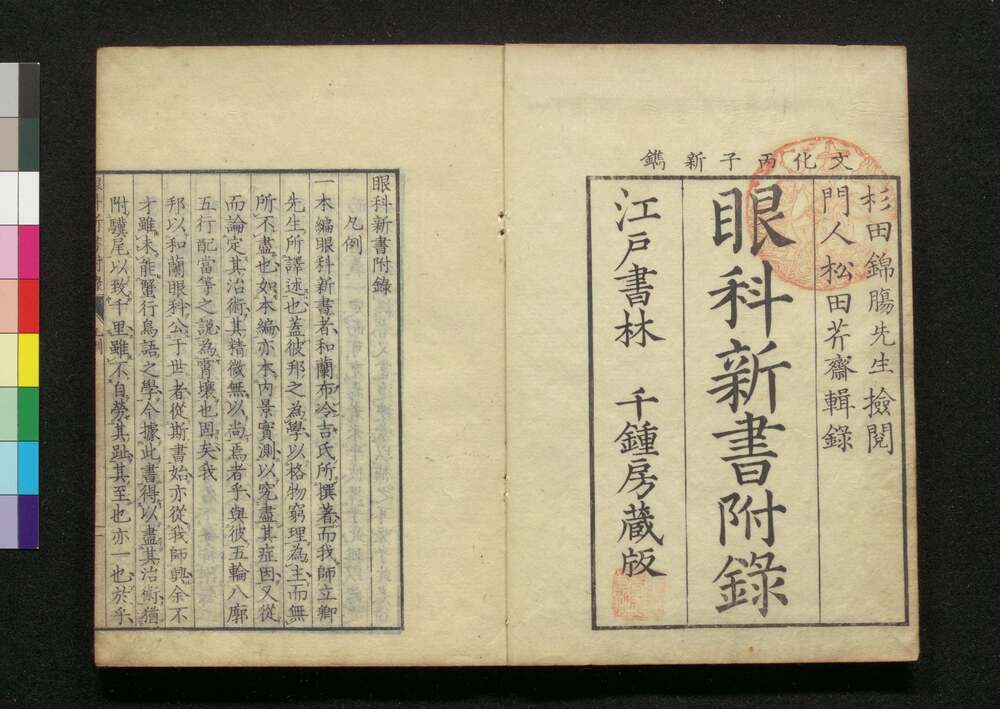 文化丙子新鐫
杉田錦腸先生撿閲
門人松田芥齋輯録
眼科新書附錄
江戸書林　千鍾房藏版
眼科新書附錄
凡例
一本編眼科新書者和蘭布冷吉氏所撰著而我師立卿
先生所譯述也蓋彼邦之為學以格物窮理為主而無
所不盡也如本編亦本内景實測以究盡其症因又從
而論定其治術其精微無以尚焉者乎與彼五輪八廓
五行配當等之説為霄壤也固矣我
邦以和蘭眼科公于世者從斯書始亦從我師興余不
才雖未能蟹行鳥語之學今據此書得以盡其治術猶
附驥尾以致千里雖不自勞其趾其至也亦一也於乎